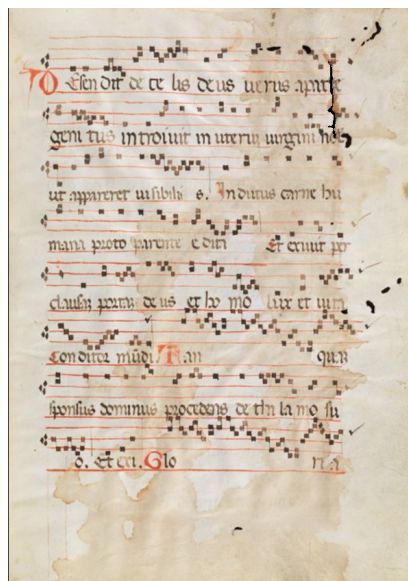 D Esen dit de ce lis de us ve rus a patre
geni tus in troi uit in uteru uirgini nos
ut appareret ui sibili s. In dutus carne hu
mana proto parente e diti Et exiuit per
clausam portam de us et ho mo lux et uita
Con ditor mūdi T an qua
sponsus dominus procedens de tha la mo su
o. Et exi. Glo ri a